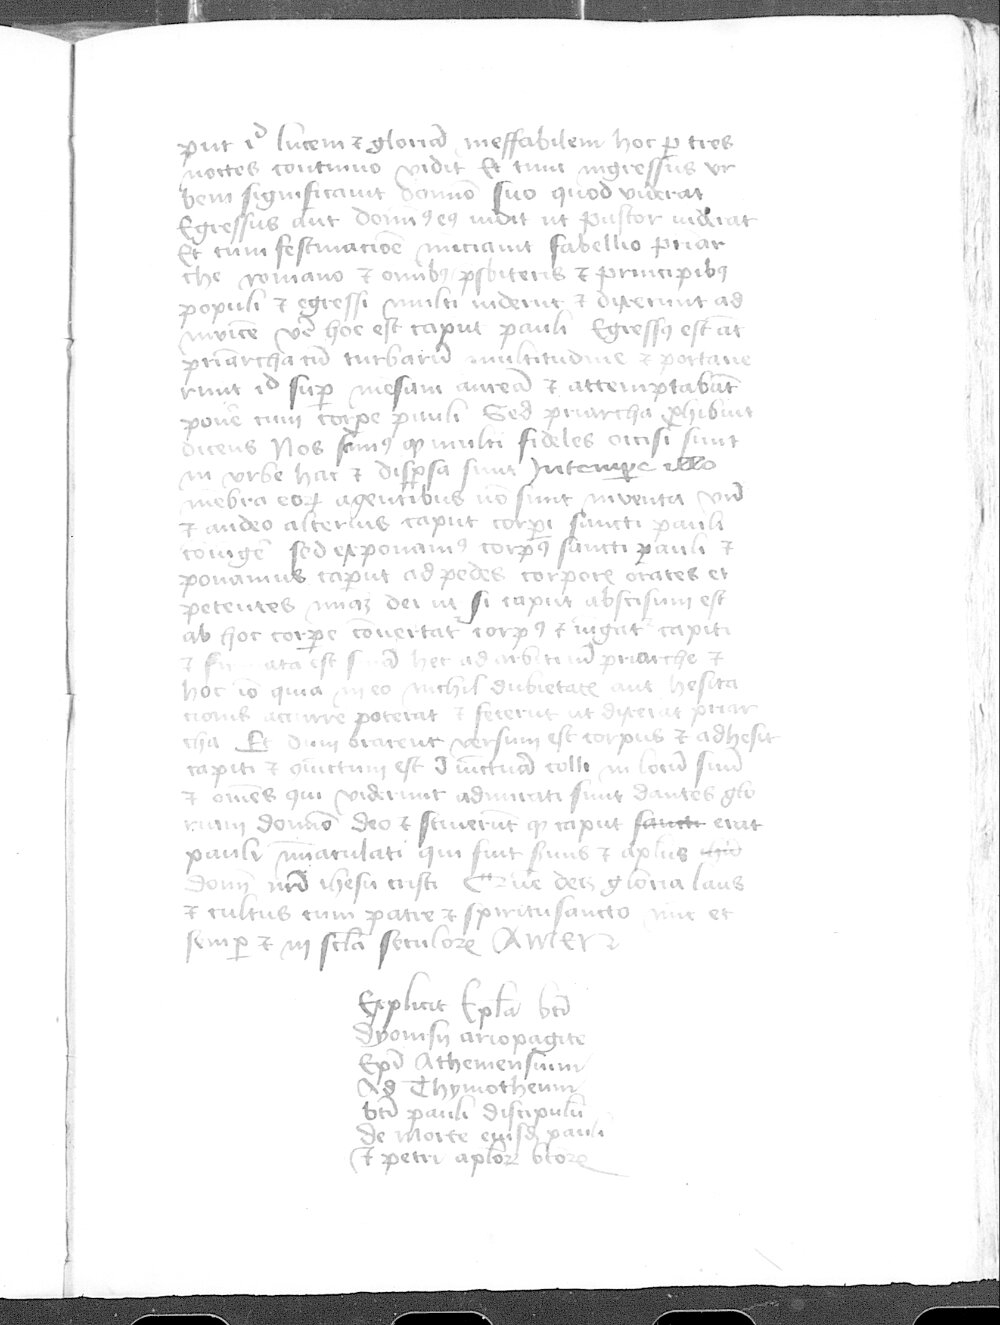 put id lucem & gloriā ineffabilem hoc p tres
noctes continuo vidit Et tunc ingressus vr
bem significauit domīo suo quod viderat
Egressus aut domin9 ei9 uidit ut pastor uiderat
Et cum festinacioē nunciauit fabellio priar
che romano & omib9 psbiteris & principib9
populi & egressi multi uiderūt & dixerunt ad
inuicē vē hoc est caput pauli Egress9 est āt
priarcha cū turbarū multitudine & portaue
runt id sup mesam aureā & attemptabāt
ponē cum corpe pauli Sed priarcha phibuit
dicens Nos scim9 qp multi fideles occisi sunt
in vrbe hac & dispsa sunt In tempe illo
mēbra eorum agentibus nō sunt inventa vnū
& audeo alterius caput corpi sancti pauli
coniūgē sed exponam9 corp9 sancti pauli &
ponamus caput ad pedes corporis orātes et
petentes miāz dei ut si caput abscisum est
ab hoc corpe conuertat corp9 & iungat capiti
& est hec ad arbitriū priarche &
hoc iō quia in eo nichil dubietatis aut hesita
cionis accurre poterat & fecerūt ut dixerat priar
cha Et dum orarent versum est corpus & adhesit
capiti & giūctum est I iūcturā colli in locū suū
& omēs qui viderunt admirati sunt dantes glo
riam domīo deo & sciuerūt qp caput sancti erat
pauli imaculati qui fuit seruus & aplus
domī nrī ihesu cristi Cui decz gloria laus
& cultus cum patre & spiritusancto nūc et
semp & in scla seculorum Amen
Explicit Epla bti
dyonisii ariopagite
Epi Atheniensium
Ad Thymotheum
bti pauli discipulū
de Morte eiusdē pauli
& petri aplorum btorum